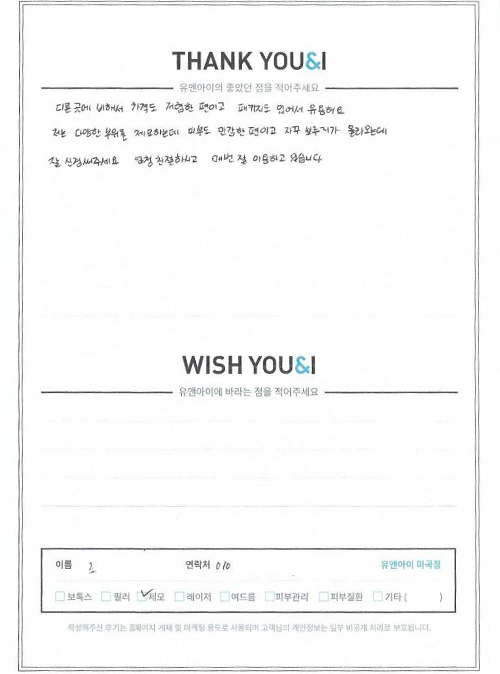 THANK YOU&I
유앤아이의 좋았던 점을 적어주세요
다른 곳에 비해서 가격도 저렴한 편이고 패키지도 있어서 유용해요
저는 다양한 부위를 제모하는데 피부도 민감한 편이고 자꾸 뾰루지가 올라오는데
잘 신경써주세요 엄청 친절하시고 매번 잘 이용하고 있습니다
WISH YOU&I
유앤아이에 바라는 점을 적어주세요
이름 연락처 010 유앤아이 마곡점
보톡스 필러 제모 레이저 여드름 피부관리 피부질환 기타 ( )
작성해주신 후기는 홈페이지 게재 및 마케팅 용도로 사용되며 고객님의 개인정보는 일부 비공개 처리로 보호됩니다.